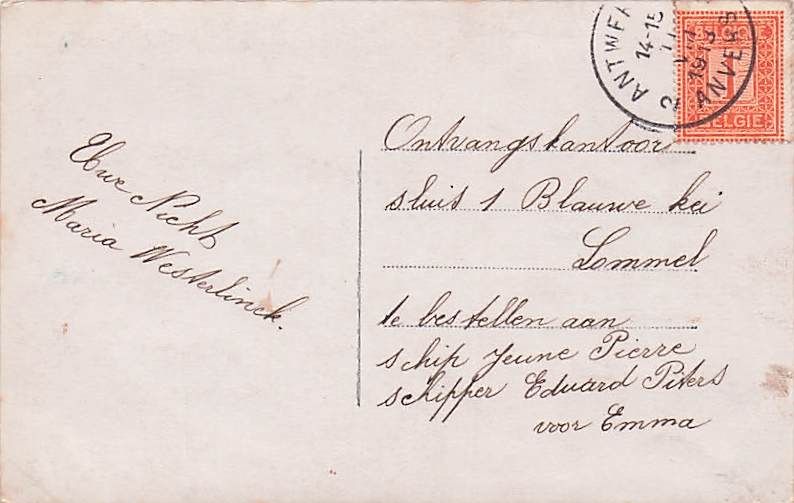 Uwe Nicht
Maria Westerlinck.
ANTWE
14-15
19
ANVERS
2
1
BELGIE
Ontvangskantoor
sluis 1 Blauwe kei
Lommel
te bestellen aan
schip Jeune Pierre
schipper Eduard Piters
voor Emma